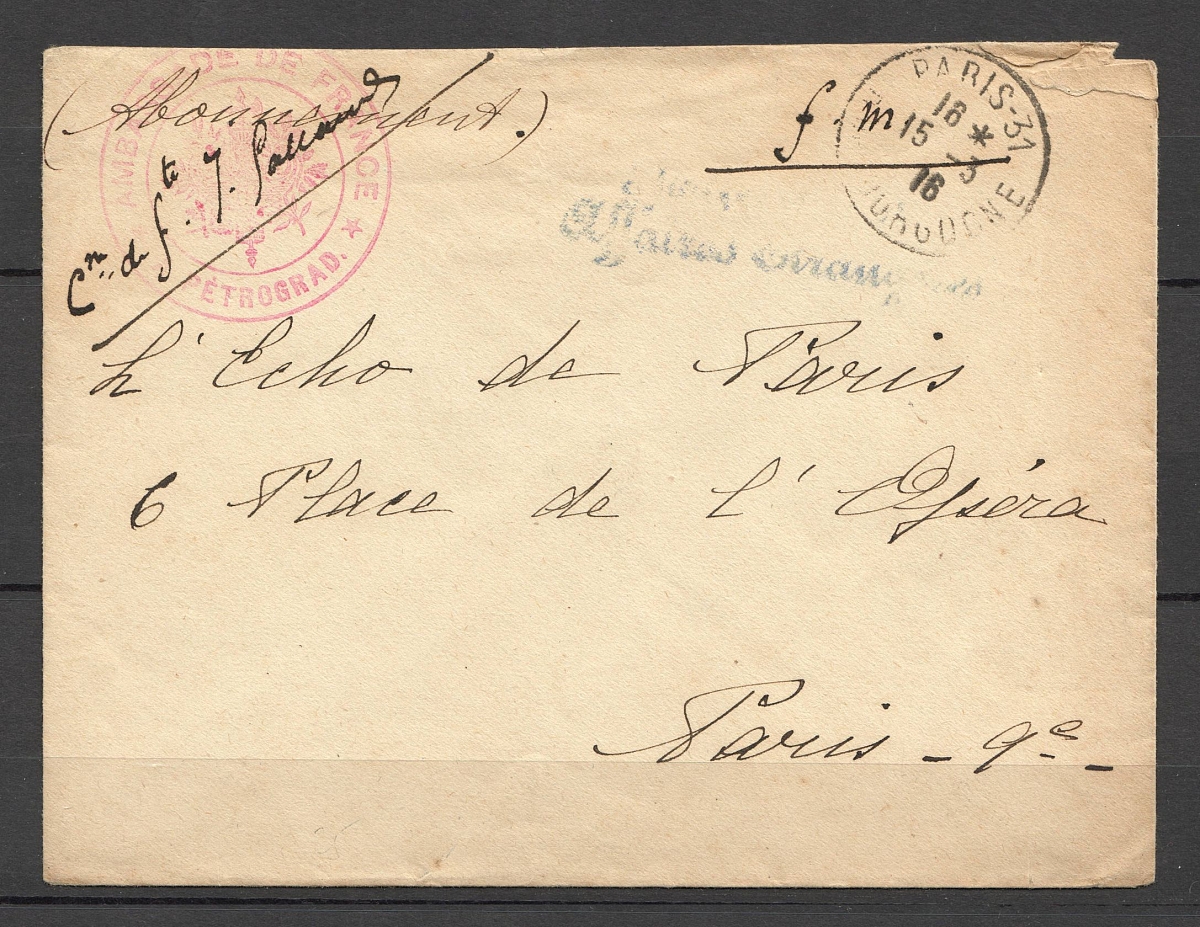 (Abonnement.)
AMBASSADE DE FRANCE
★ PÉTROGRAD. ★
f m
PARIS-31
16 *
15 -3
16
Affaires étrangères
L'Echo de Paris
6 Place de l'Opéra
Paris - 9e -